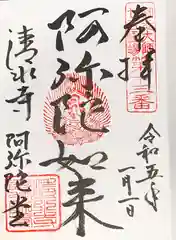 奉拝
令和五年
一月一日
阿弥陀如来
清水寺
阿弥陀堂